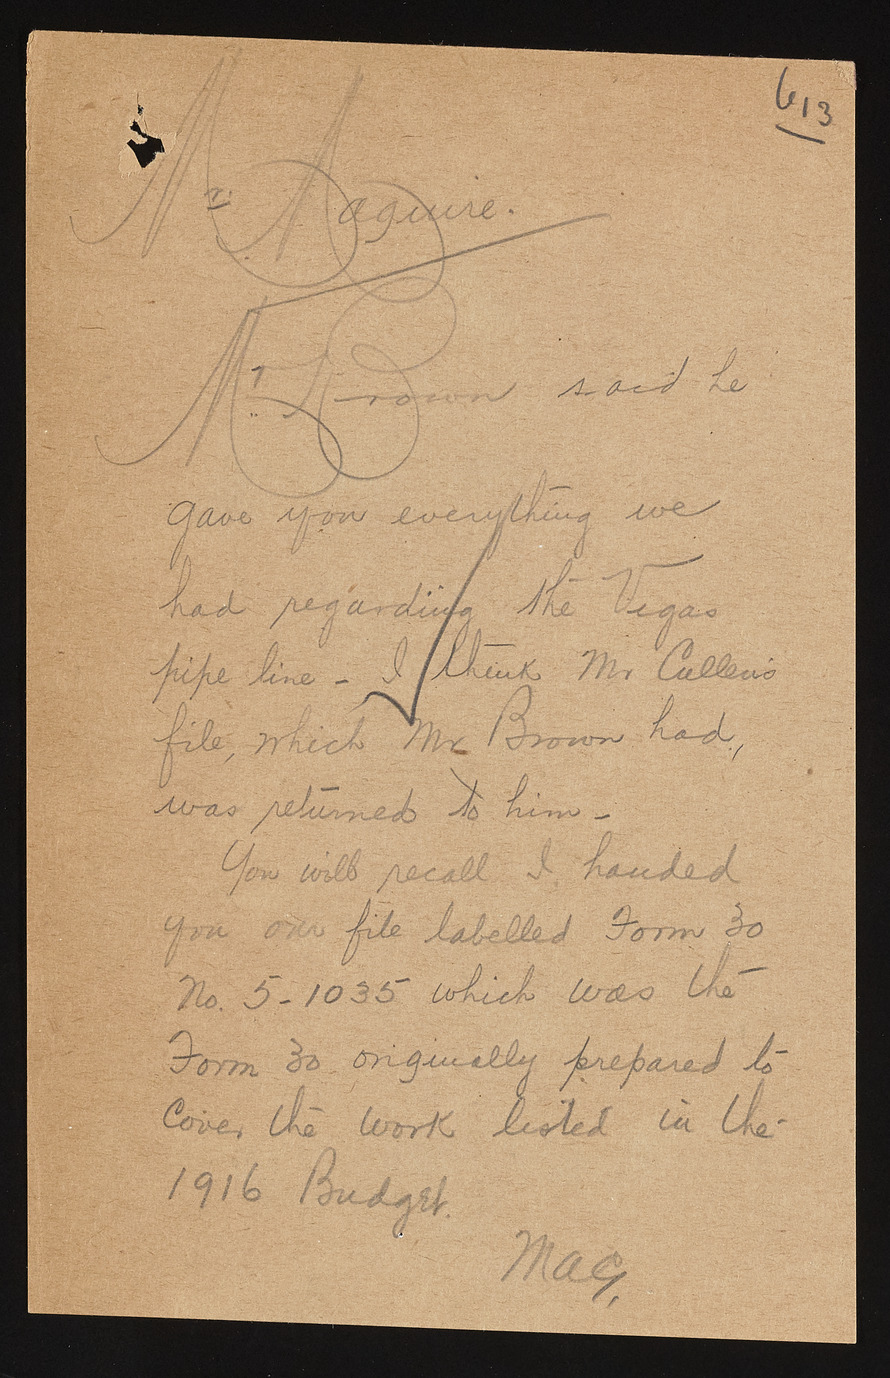 613
Mr. Maguire.
Mr. Brown said he
gave you everything we
had regarding the Vegas
pipe line - I think Mr Cullen's
file, which Mr Brown had,
was returned to him -
You will recall I handed
you our file labelled Form 30
No. 5-1035 which was the
Form 30 originally prepared to
cover the work listed in the
1916 Budget.
MaG,